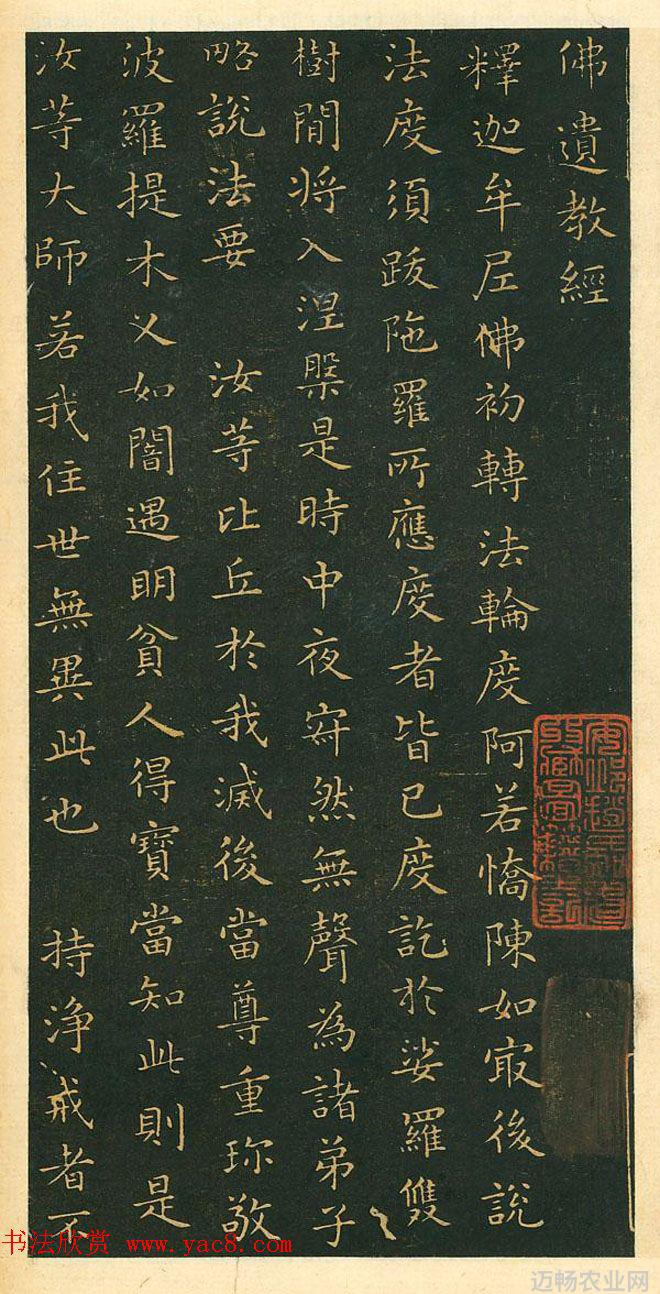 佛遺教經
釋迦牟尼佛初轉法輪度阿若憍陳如㝡後說
法度須跋陁羅所應度者皆已度訖於娑羅雙
樹間將入涅槃是時中夜寂然無聲為諸弟子
略說法要 汝等比丘於我滅後當尊重珎敬
波羅提木叉如闇遇明貧人得寶當知此則是
汝等大師若我住世無異此也 持淨戒者不
书法欣赏 www.yac8.com
迈畅农业网